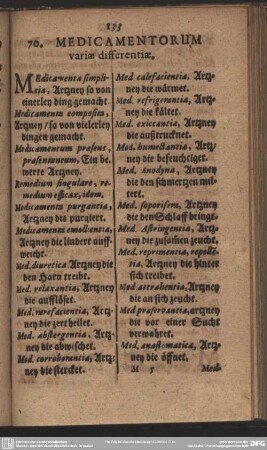 133
70. MEDICAMENTORUM
variæ differentiæ.
MEdicamenta simpli-
cia, Artzney so von
einerley ding gemacht
Medicamentum compositum,
Artzney / so von vielerley
dingen gemacht.
Medicamentum præsens,
præsentaneum, Ein be-
werte Artzney.
Remedium singulare, re-
medium efficax, idem.
Medicamenta purgantia,
Artzney die purgiert.
Medicamenta emollientia,
Artzney die lindert auff-
weicht.
Med. diuretica Artzney die
den Harn treibt.
Med. relaxantia, Artzney
die aufflöset.
Med. rarefacientia, Artz-
ney die zertheilet.
Med. abstergentia, Artz-
ney die abwischet.
Med. corroborantia, Artz-
ney die stercket.
Med. calefacientia, Artz-
ney die wärmet.
Med. refrigerantia, Artz-
ney die kältet.
Med. exiccantia, Artzney
die außtrucknet.
Med. humectantia, Artz-
ney die befeuchtiget.
Med. anodyna, Artzney
die den schmertzen mil-
tert.
Med. soporifera, Artzney
die den Schlaff bringt.
Med. Astringentia, Artz-
ney die zusamen zeucht.
Med. reprimentia, repellē-
tia. Artzney die hinter
sich treibet.
Med attrahentia, Artzney
die an sich zeucht.
Med præservantia, artzney
die vor einer Sucht
verwahret.
Med. anastomatica, Artz-
ney die öffnet.
M 5 Med-